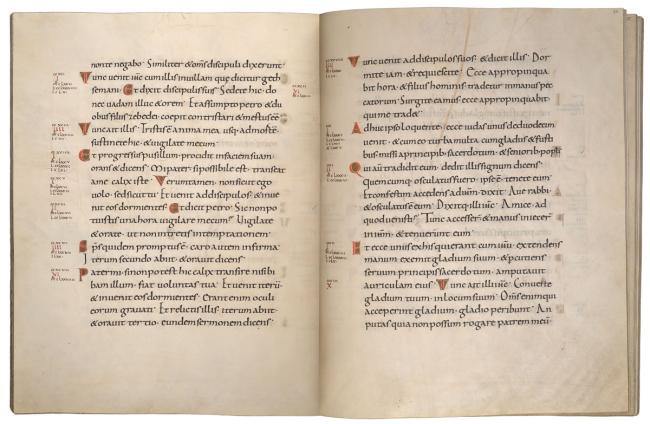 nonte negabo· Similiter & om̄s discipuli dixerunt·
Tunc venit ih̄s cum illis in uillam que dicitur geth
semani· Et dixit discipulis suis· Sedete hic· do
nec vadam illuc & orem· Et assumpto petro & du
obus filiis zebedei· coepit contristari & mestus ēē·
Tunc ait illis· Tristis ē anima mea usq; ad morte·
sustinete hic· & uigilate mecum·
Et progressus pusillum· procidit in faciem suam·
orans & dicens· Mi pater· si possibile est· transeat
a me calix iste· Verumtamen· non sicut ego
uolo· sed sicut tu· Et uenit ad discipulos· & inue
nit eos dormientes· Et dicit petro· Sic non po
tuistis una hora uigilare mecum· Uigilate
& orate· ut non intretis in temptationem·
Sp̄s quidem promptus ē· caro autem infirma·
Iterum secundo abiit· & orauit dicens·
Pater mi· si non potest hic calix transire nisi bi
bam illum· fiat uoluntas tua· Et uenit iterū
& inuenit eos dormientes· Erant enim oculi
eorum grauati· Et relictis illis· iterum abiit·
& orauit tertio· eundem sermonem dicens·
Tunc uenit ad discipulos suos· & dicit illis· Dor
mite iam· & requiescite· Ecce appropinqua
bit hora· & filius hominis tradetur in manus pec
catorum· Surgite eamus ecce appropinquabit
qui me trad&·
Adhuc ipso loquente· ecce iudas unus de duodecim
uenit· & cum eo turba multa cum gladiis & fusti
bus· missi a principib; sacerdotum· & seniorib; populi·
Qui aut tradidit eum· dedit illis signum dicens·
Quemcunq; osculatus fuero· ipse ē· tenete eum·
Et confestim accedens ad ih̄m· dixit· Aue rabbi·
& osculatus ē eum· Dixitq; illi ih̄s· Amice· ad
quod uenisti· Tunc accesser̄· & manus iniecer̄
in ih̄m· & tenuerunt eum·
Et ecce unus ex his qui erant cum ih̄u· extendens
manum· exemit gladium suum· & percutiens
seruum principis sacerdotum· amputauit
auriculam eius· Tunc ait illi ih̄s· Conuerte
gladium tuum· in locum suum· Om̄s enim qui
acceperint gladium· gladio peribunt· An
putas quia non possum rogare patrem meū·